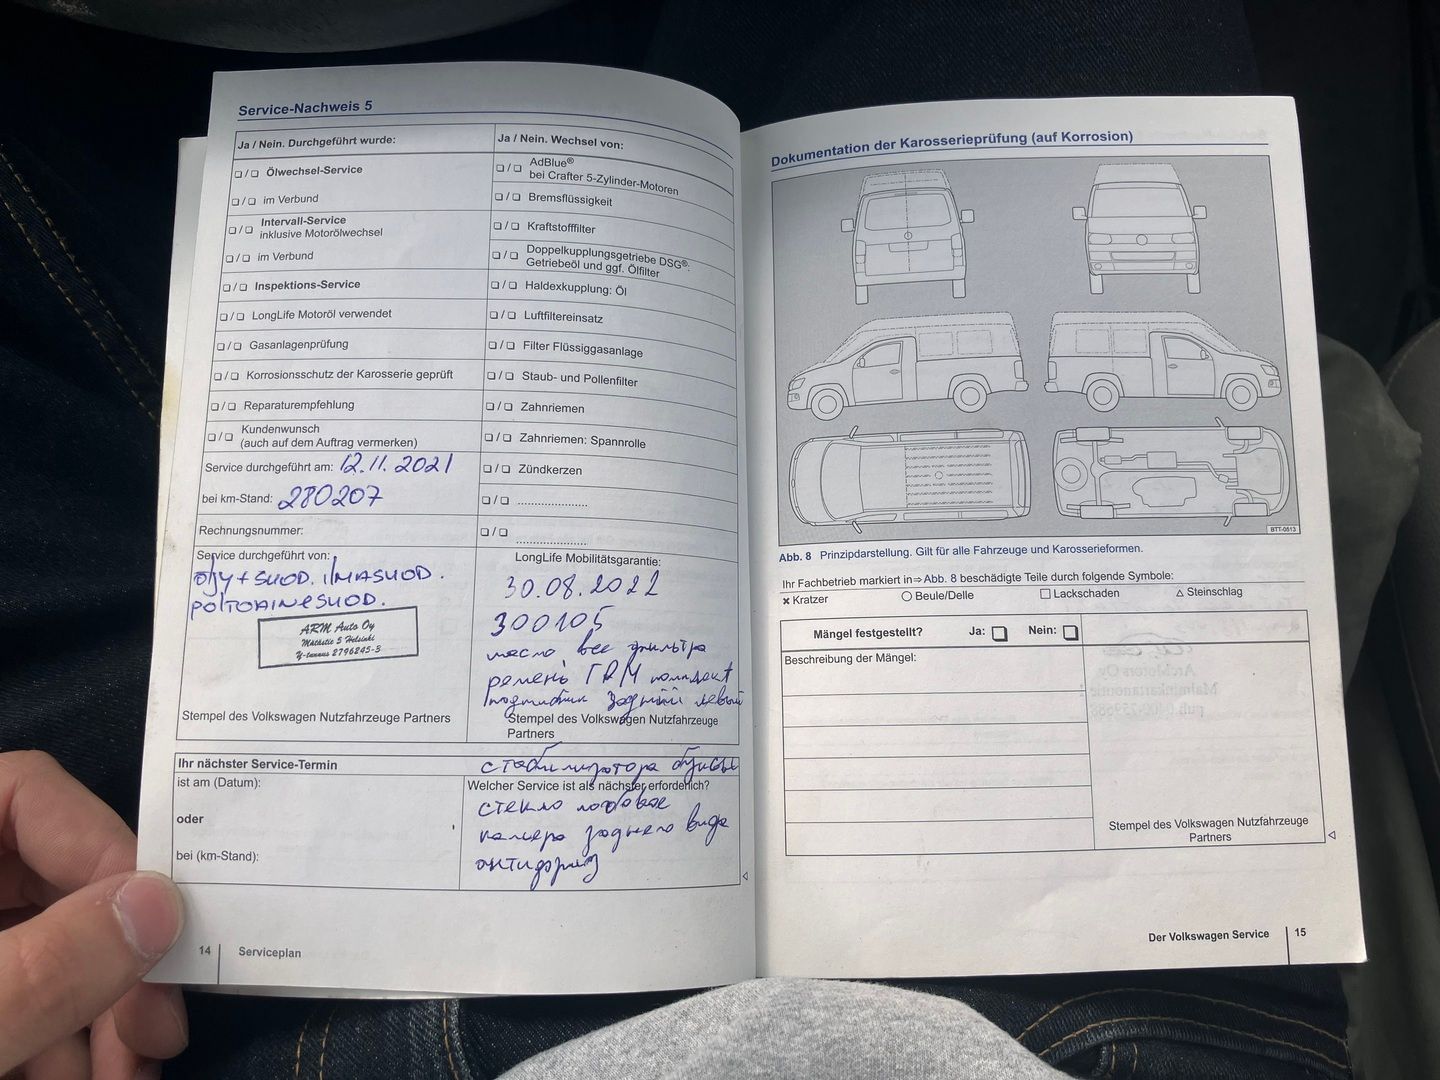 Service-Nachweis 5
Ja / Nein. Durchgeführt wurde:
❑ / ❑ Ölwechsel-Service
❑ / ❑ im Verbund
❑ / ❑ Intervall-Service
inklusive Motorölwechsel
❑ / ❑ im Verbund
❑ / ❑ Inspektions-Service
❑ / ❑ LongLife Motoröl verwendet
❑ / ❑ Gasanlagenprüfung
❑ / ❑ Korrosionsschutz der Karosserie geprüft
❑ / ❑ Reparaturempfehlung
❑ / ❑ Kundenwunsch
(auch auf dem Auftrag vermerken)
Service durchgeführt am: 12.11.2021
bei km-Stand: 280207
Rechnungsnummer:
Service durchgeführt von:
öljy+SUOD. ilMASUOD.
polTOAINeSUOD.
ARM Auto Oy
5 Helsinki
Y-tunnus 2796245-3
Stempel des Volkswagen Nutzfahrzeuge Partners
Ja / Nein. Wechsel von:
❑ / ❑ AdBlue®
bei Crafter 5-Zylinder-Motoren
❑ / ❑ Bremsflüssigkeit
❑ / ❑ Kraftstofffilter
❑ / ❑ Doppelkupplungsgetriebe DSG®:
Getriebeöl und ggf. Ölfilter
❑ / ❑ Haldexkupplung: Öl
❑ / ❑ Luftfiltereinsatz
❑ / ❑ Filter Flüssiggasanlage
❑ / ❑ Staub- und Pollenfilter
❑ / ❑ Zahnriemen
❑ / ❑ Zahnriemen: Spannrolle
❑ / ❑ Zündkerzen
❑ / ❑ ....................
❑ / ❑ ....................
LongLife Mobilitätsgarantie:
30.08.2022
300105
масло, все фильтра
ремень ГРМ комплект
подшибник задний левый
Stempel des Volkswagen Nutzfahrzeuge
Partners
Ihr nächster Service-Termin
ist am (Datum):
oder
bei (km-Stand):
стабилизатора
Welcher Service ist als nächster erforderlich?
стекло лобовое
камера заднего вида
антифриз
14
Serviceplan
Dokumentation der Karosserieprüfung (auf Korrosion)
BTT-0813
Abb. 8 Prinzipdarstellung. Gilt für alle Fahrzeuge und Karosserieformen.
Ihr Fachbetrieb markiert in⇒Abb. 8 beschädigte Teile durch folgende Symbole:
✖ Kratzer
○ Beule/Delle
□ Lackschaden
△ Steinschlag
Mängel festgestellt? Ja: ❑ Nein: ❑
Beschreibung der Mängel:
Stempel des Volkswagen Nutzfahrzeuge
Partners
Der Volkswagen Service
15